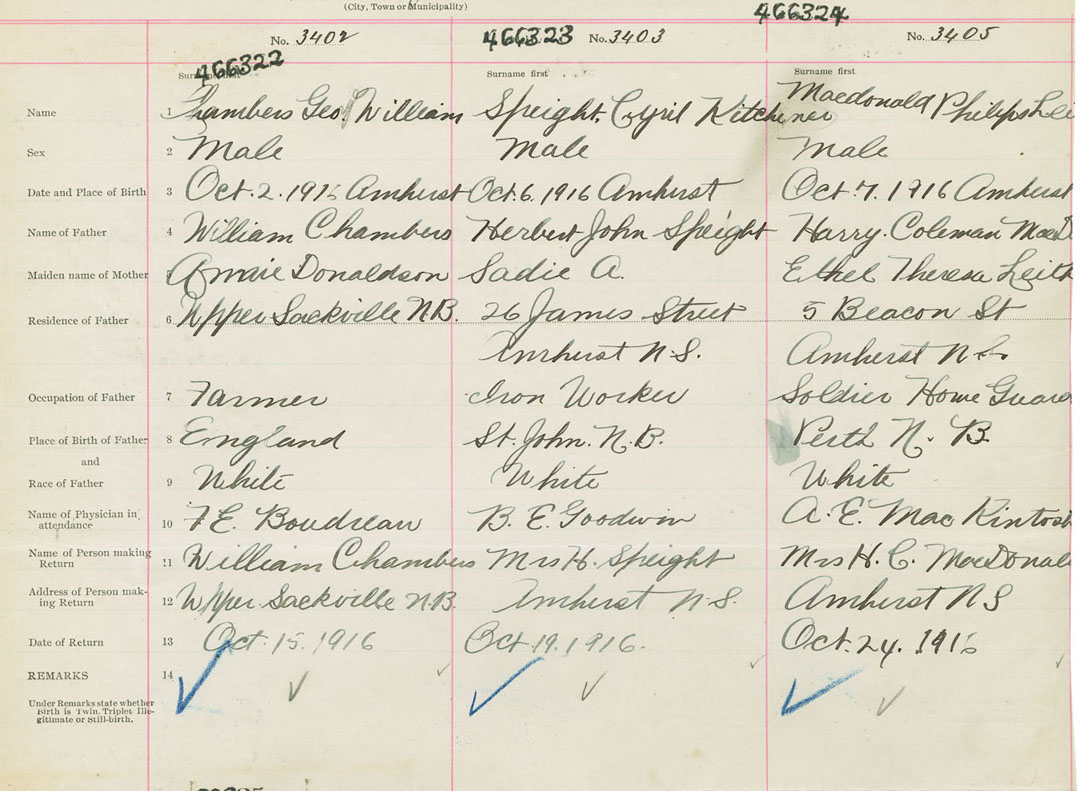 (City, Town or Municipality)
466324
No. 3402 466323 No. 3403 No. 3405
466322
Surname first Surname first Surname first
Name 1 Chambers Geo. William Speight, Cyril Kitchener Macdonald Philips
Sex 2 Male Male Male
Date and Place of Birth 3 Oct. 2. 1916 Amhurst Oct. 6. 1916 Amhurst Oct. 7. 1916 Amhurst
Name of Father 4 William Chambers Herbert John Speight Harry. Coleman MacD
Maiden name of Mother 5 Annie Donaldson Sadie A. Ethel Theresa Leith
Residence of Father 6 Upper Sackville N.B. 26 James Street 5 Beacon St
Amherst N.S. Amherst N.S.
Occupation of Father 7 Farmer Iron Worker Soldier Home Guard
Place of Birth of Father 8 England St. John. N.B. Perth N. B.
and
Race of Father 9 White White White
Name of Physician in
attendance 10 F E. Boudreau B. E. Goodwin A. E. Mac Kintosh
Name of Person making
Return 11 William Chambers Mrs H. Speight Mrs H. C. MacDonal
Address of Person mak-
ing Return 12 Upper Sackville N.B. Amherst N.S. Amherst N S
Date of Return 13 Oct. 15. 1916 Oct. 19. 1916. Oct. 24. 1916
REMARKS 14
Under Remarks state whether
Birth is Twin, Triplet Ille-
gitimate or Still-birth.